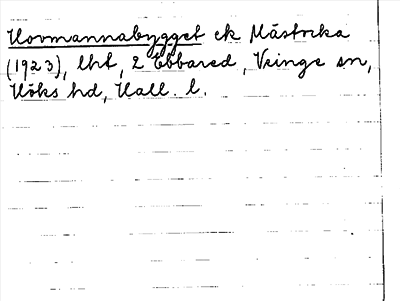 Hovmannabygget ek Mästocka
(1923), lht, 2 Ebbared, Veinge sn,
Höks hd, Hall. l.